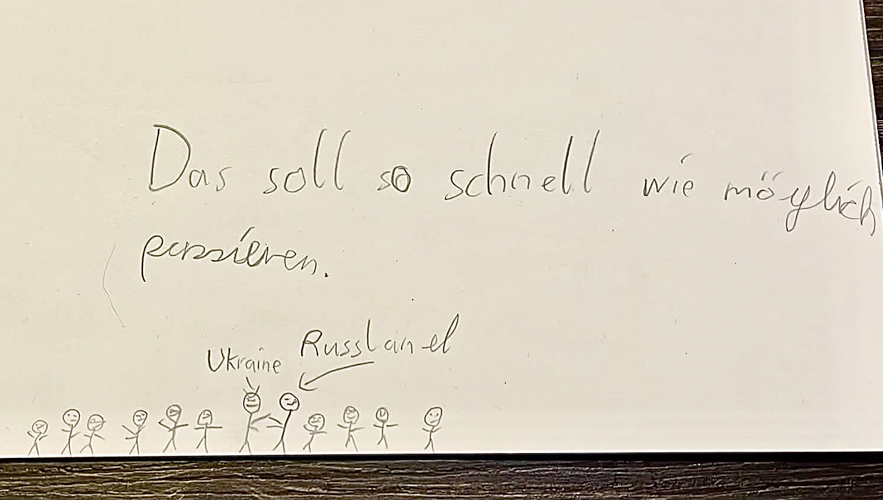 Das soll so schnell wie möglich
passieren.
Ukraine Russland